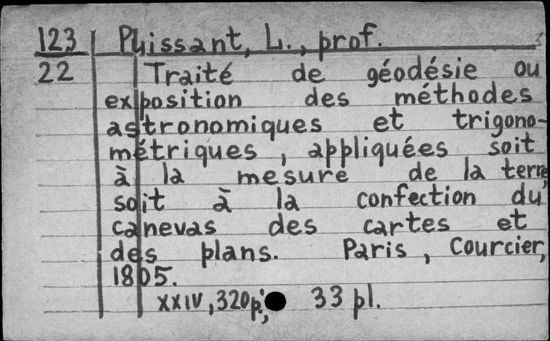 123 Puissant, L., prof.
22 Traité de géodésie ou
exposition des méthodes
astronomiques et trigono-
métriques, appliquées soit
à la mesure de la terre,
soit à la confection du
canevas des cartes et
des plans. Paris, Courcier,
1805.
XXIV, 320p.; 33 pl.